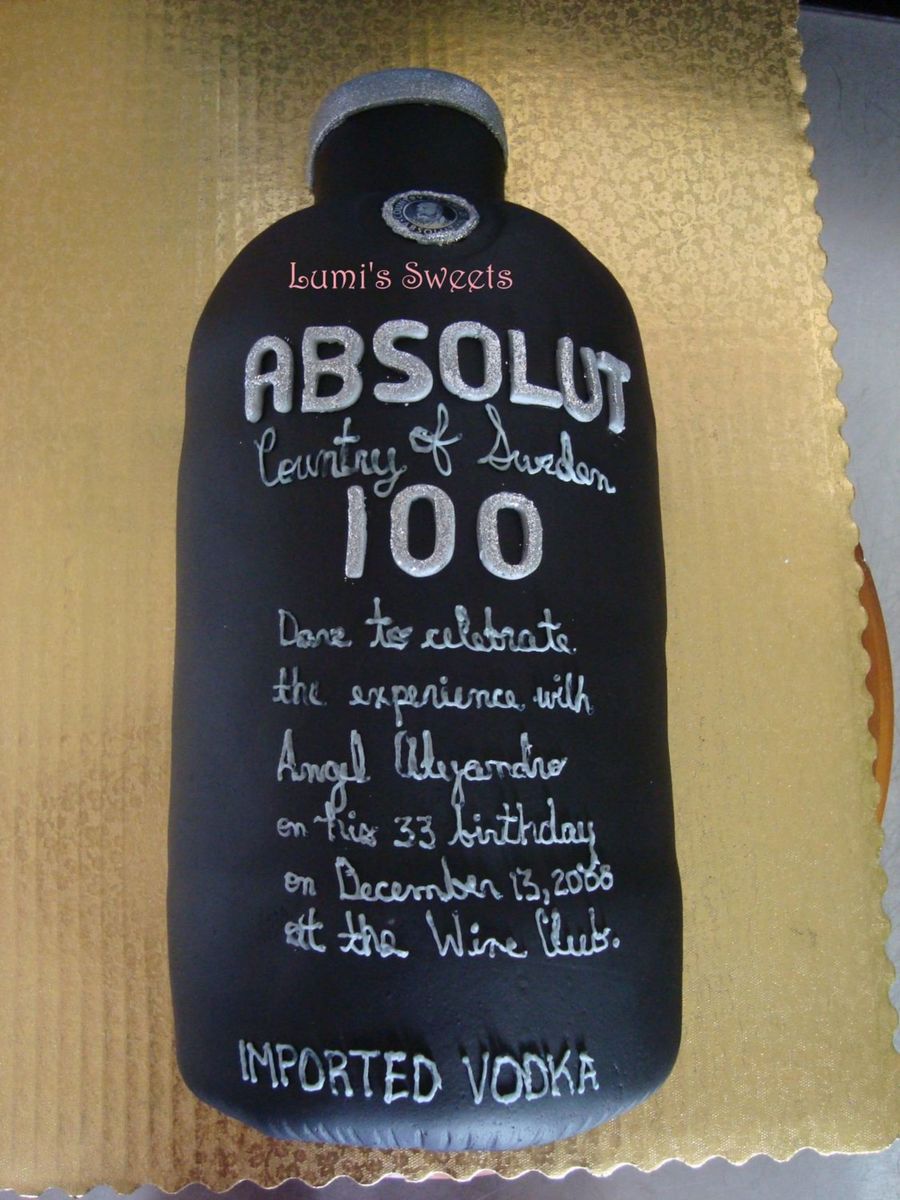 Lumi's Sweets
ABSOLUT
Country of Sweden
100
Dare to celebrate
the experience with
Angel Alejandro
on his 33 birthday
on December 13, 2008
at the Wine Club.
IMPORTED VODKA